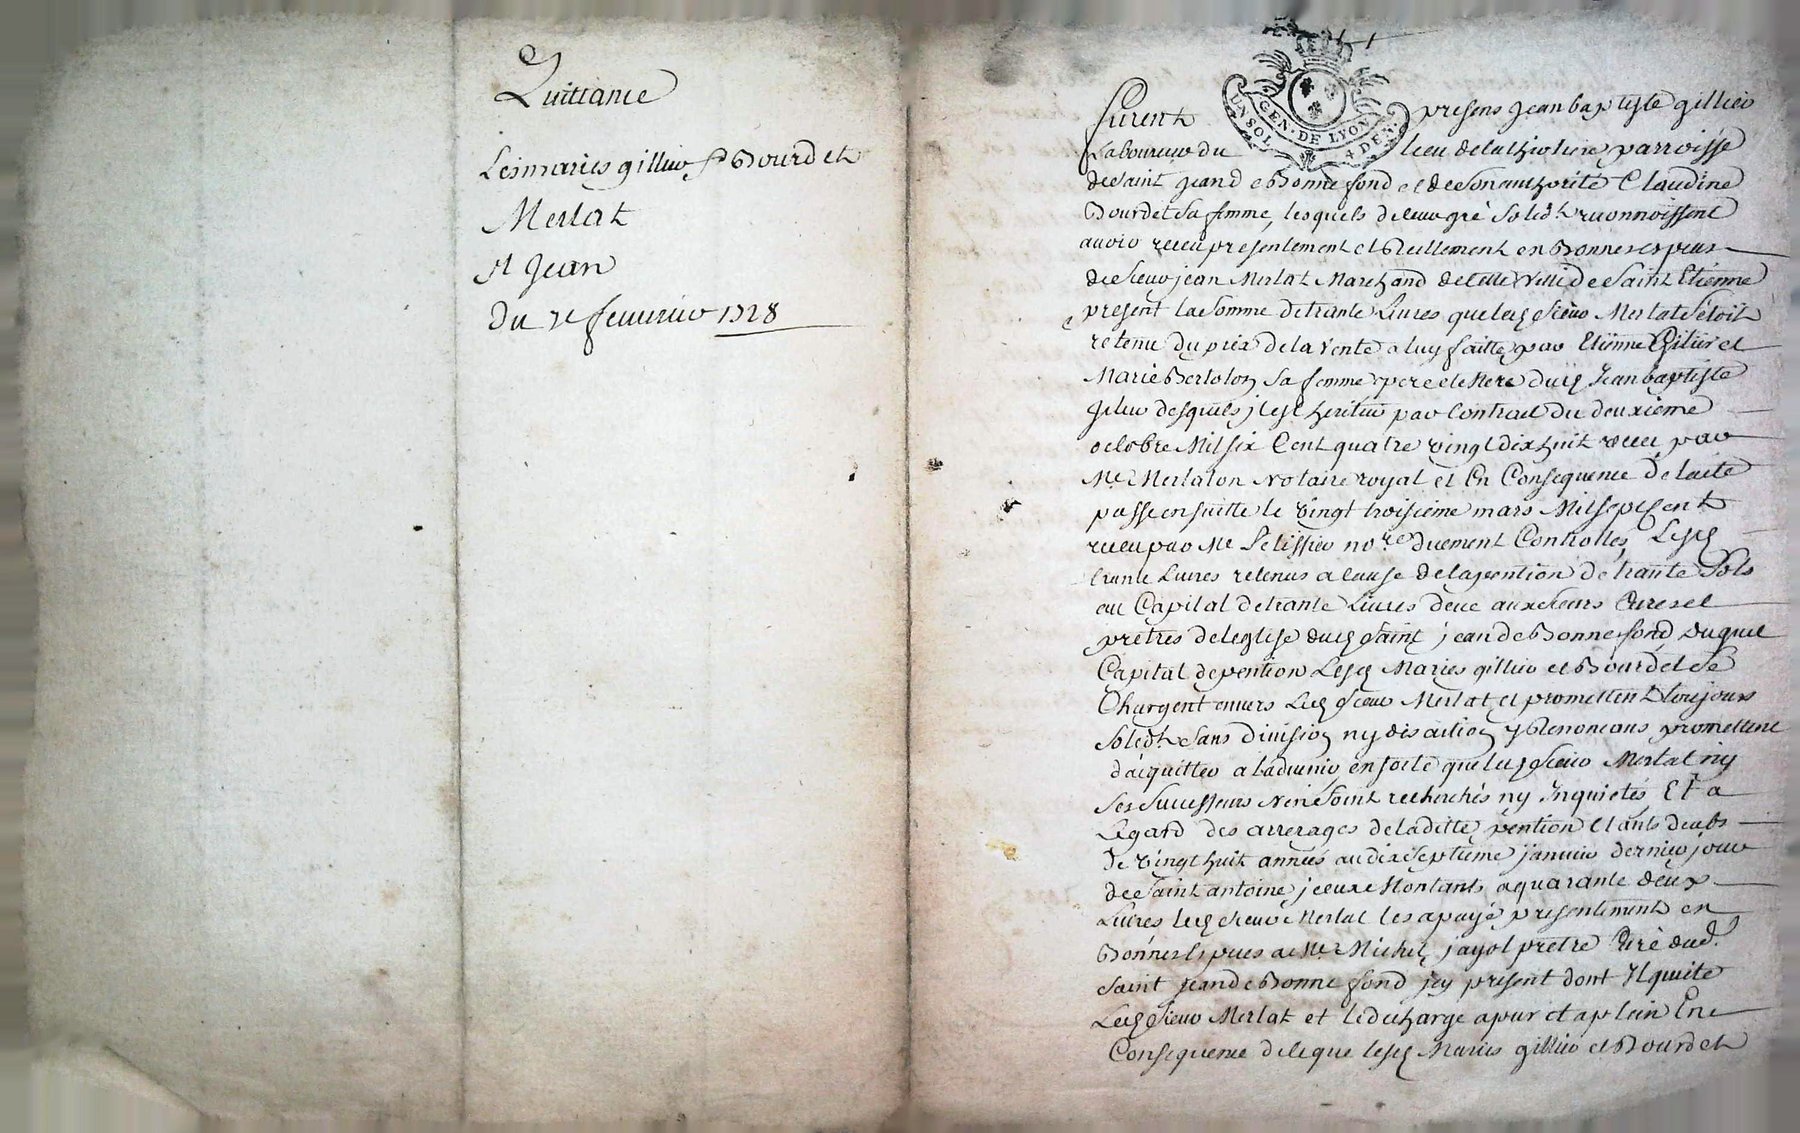 Quittance
Les mariés gillier & Bourdet
Merlat
St Jean
Du 7e feuurier 1728
GEN · DE LYON
UN SOL 4 DEN.
furent presens Jean baptiste gillier
Laboureur du lieu de parroisse
de Saint Jean de Bonnefond et de son authorité Claudine
Bourdet Sa femme, lesquels de leur gré Solidt. reconnoissent
auoir receu presentement et Reellement en Bonnes especes
de Sieur jean Merlat Marchand de cette Ville de Saint Etienne
present la Somme de trante Liures que led. Sieur Merlat s'étoit
retenu du prix de la Vente a luy faitte par Etienne Gilier et
Marie Bertolon Sa femme pere et Mere dud. Jean baptiste
Gilier desquels jl est heritier par Contract du deuxieme
octobre Mil six Cent quatre vingt dix huit receu par
Me. Merlaton Notaire royal et En Consequence de lacte
passé en suitte le vingt troisieme mars Mil sept Cent
receu par Me Pelissier nore. duement Controllés, Lesd.
trante Liures retenus a Cause de la pention de trante Sols
au Capital de trante Liures deue aux Sieurs Curé et
prêtres de leglise dud. Saint jean de Bonnefond duquel
Capital de pention Lesd. Mariés gillier et Bourdet Se
Chargent enuers Led. Sieur Merlat et promettent toujours
Solidt. Sans diuision ny discution y Renoncans promettent
d'acquitter a ladvenir en sorte que led. Sieur Merlat ny
Ses Successeurs N'en Soint recherchés ny Inquietés Et a
Legard des arrerages de laditte pention Etants deubs
de vingt huit années au dix Septieme januier dernier jour
de Saint antoine jceux Montants a quarante deux
Liures led. Sieur Merlat les a payé presentement en
Bonnes Espèces a Me. Michel jayol prêtre Curé dud.
Saint Jean de Bonnefond jcy present dont Il quitte
Led. Sieur Merlat et le decharge a pur et a plein En
Consequence de ce que lesd. Mariés gillier et Bourdet